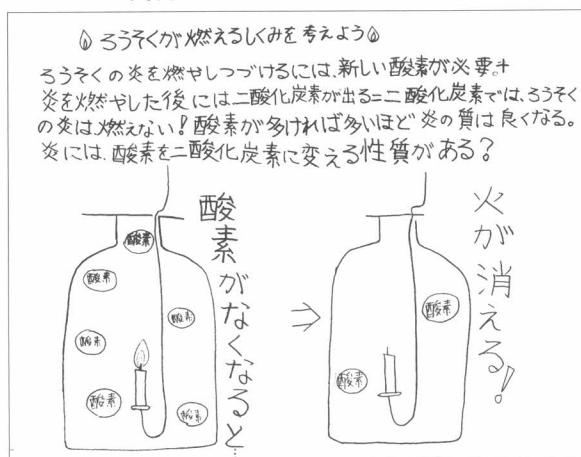 ろうそくが燃えるしくみを考えよう
ろうそくの炎を燃やしつづけるには、新しい酸素が必要。+
炎を燃やした後には二酸化炭素が出る=二酸化炭素では、ろうそく
の炎は燃えない!酸素が多ければ多いほど炎の質は良くなる。
炎には、酸素を二酸化炭素に変える性質がある?
酸素がなくなると…
酸素
酸素
酸素
酸素
酸素
酸素
⇒
火が消える!
酸素
酸素